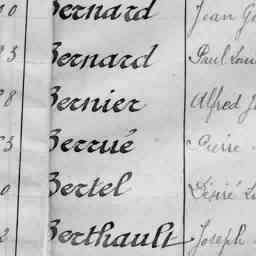 0 Bernard Jean
3 Bernard Paul
8 Bernier Alfred
3 Berrué Pierre
0 Bertel Désiré
2 Berthault Joseph